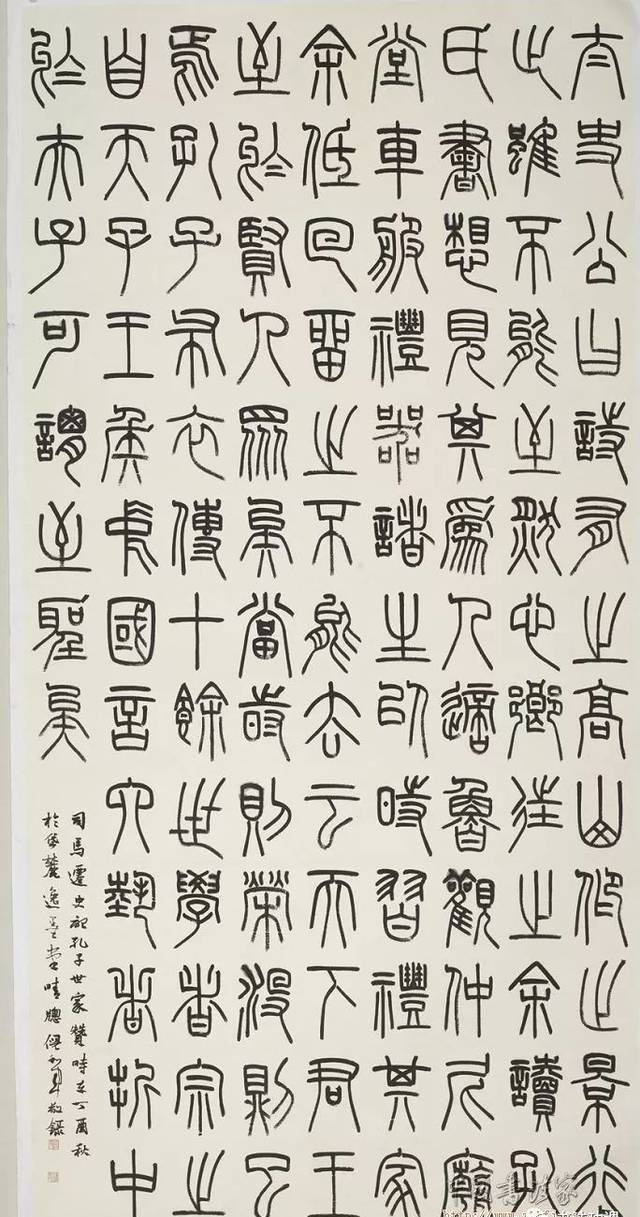 太史公曰詩有之高山仰止景行
止雖不能至然心鄉往之余讀孔
氏書想見其爲人適魯觀仲尼廟
堂車服禮器諸生以時習禮其家
余低回留之不能去云天下君王
至於賢人衆矣當時則榮沒則已
焉孔子布衣傳十餘世學者宗之
自天子王侯中國言六藝者折中
於夫子可謂至聖矣
司馬遷史記孔子世家贊時在丁酉秋
於岱麓逸墨堂晴窗敬錄